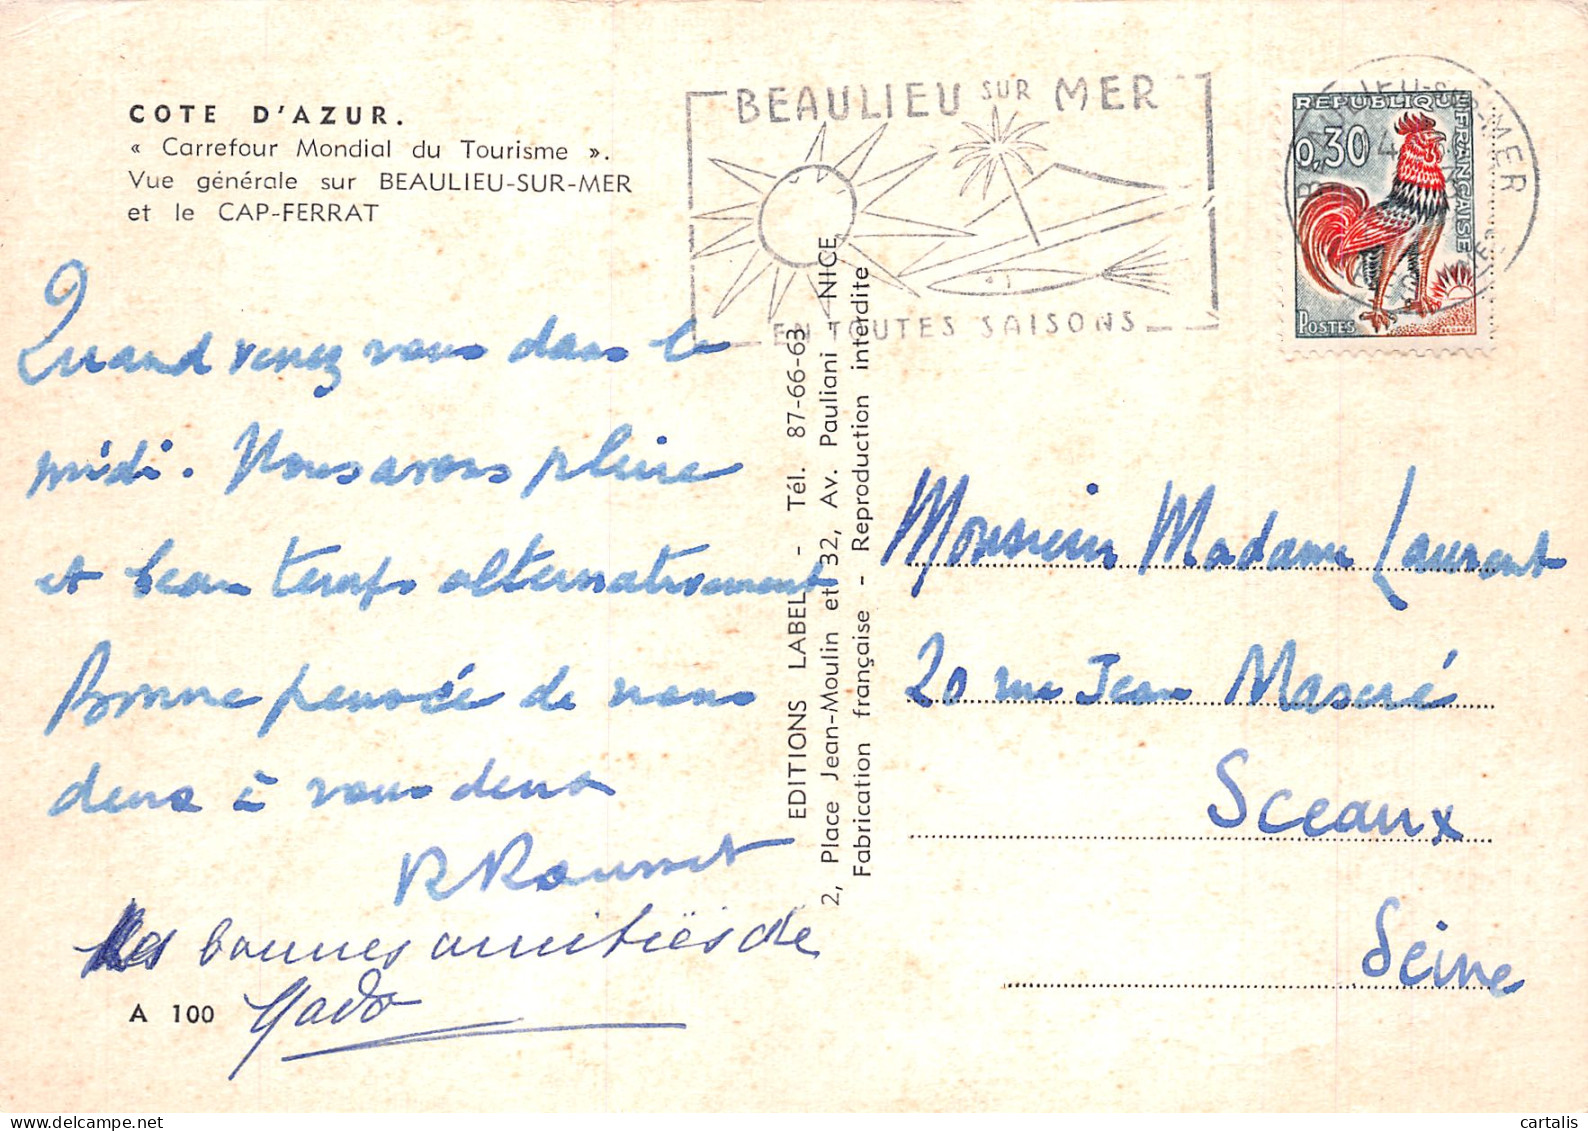 COTE D'AZUR.
« Carrefour Mondial du Tourisme ».
Vue générale sur BEAULIEU-SUR-MER
et le CAP-FERRAT
BEAULIEU SUR MER
EN TOUTES SAISONS
REPUBLIQUE FRANÇAISE
0,30
POSTES
Quand venez vous dans le
midi. Nous avons pluie
et beau temps alternativement
Bonne pensée de nous
deux à vous deux
R Rousset
Les bonnes amitiés de
Gado
A 100
EDITIONS LABEL - Tél. 87-66-63
2, Place Jean-Moulin et 32, Av. Pauliani - NICE
Fabrication française - Reproduction interdite
Monsieur Madame Laurent
20 rue Jean Mascré
Sceaux
Seine
cartalis
delcampe.net